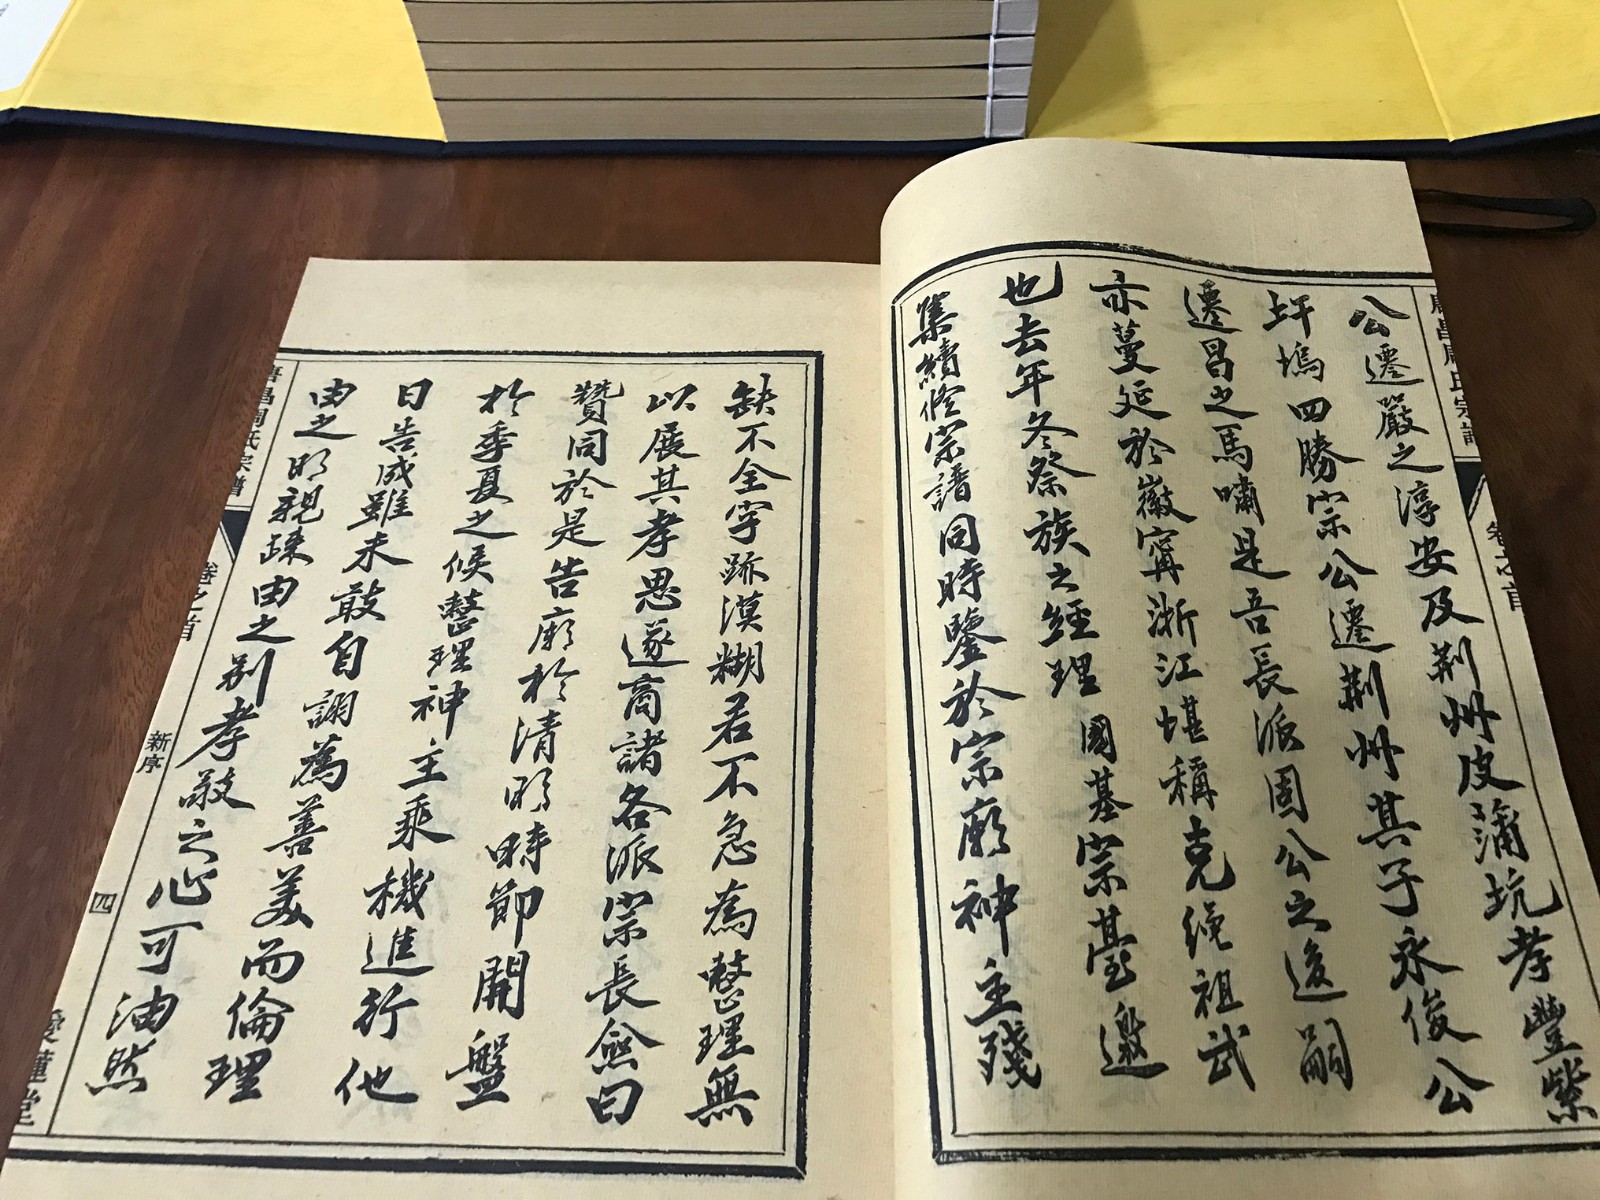 公遷嚴之淳安及荆州皮蒲坑孝豐紫
圩塢四勝宗公遷荆州其子永俊公
遷昌之馬嘯是吾長派固公之後嗣
亦蔓延於徽寧浙江堪稱克繩祖武
也去年冬祭族之經理國基宗臺邀
集續修宗譜同時鑒於宗廟神主殘
缺不全字跡漠糊若不急為整理無
以展其孝思遂商諸各派宗長僉曰
贊同於是告廟於清明時節開盤
於季夏之候整理神主乘機進行他
日告成雖未敢自謝為善美而倫理
由之明親疎由之别孝敬之心可油然
昌周氏宗譜
卷之首
新序
四
愛蓮堂